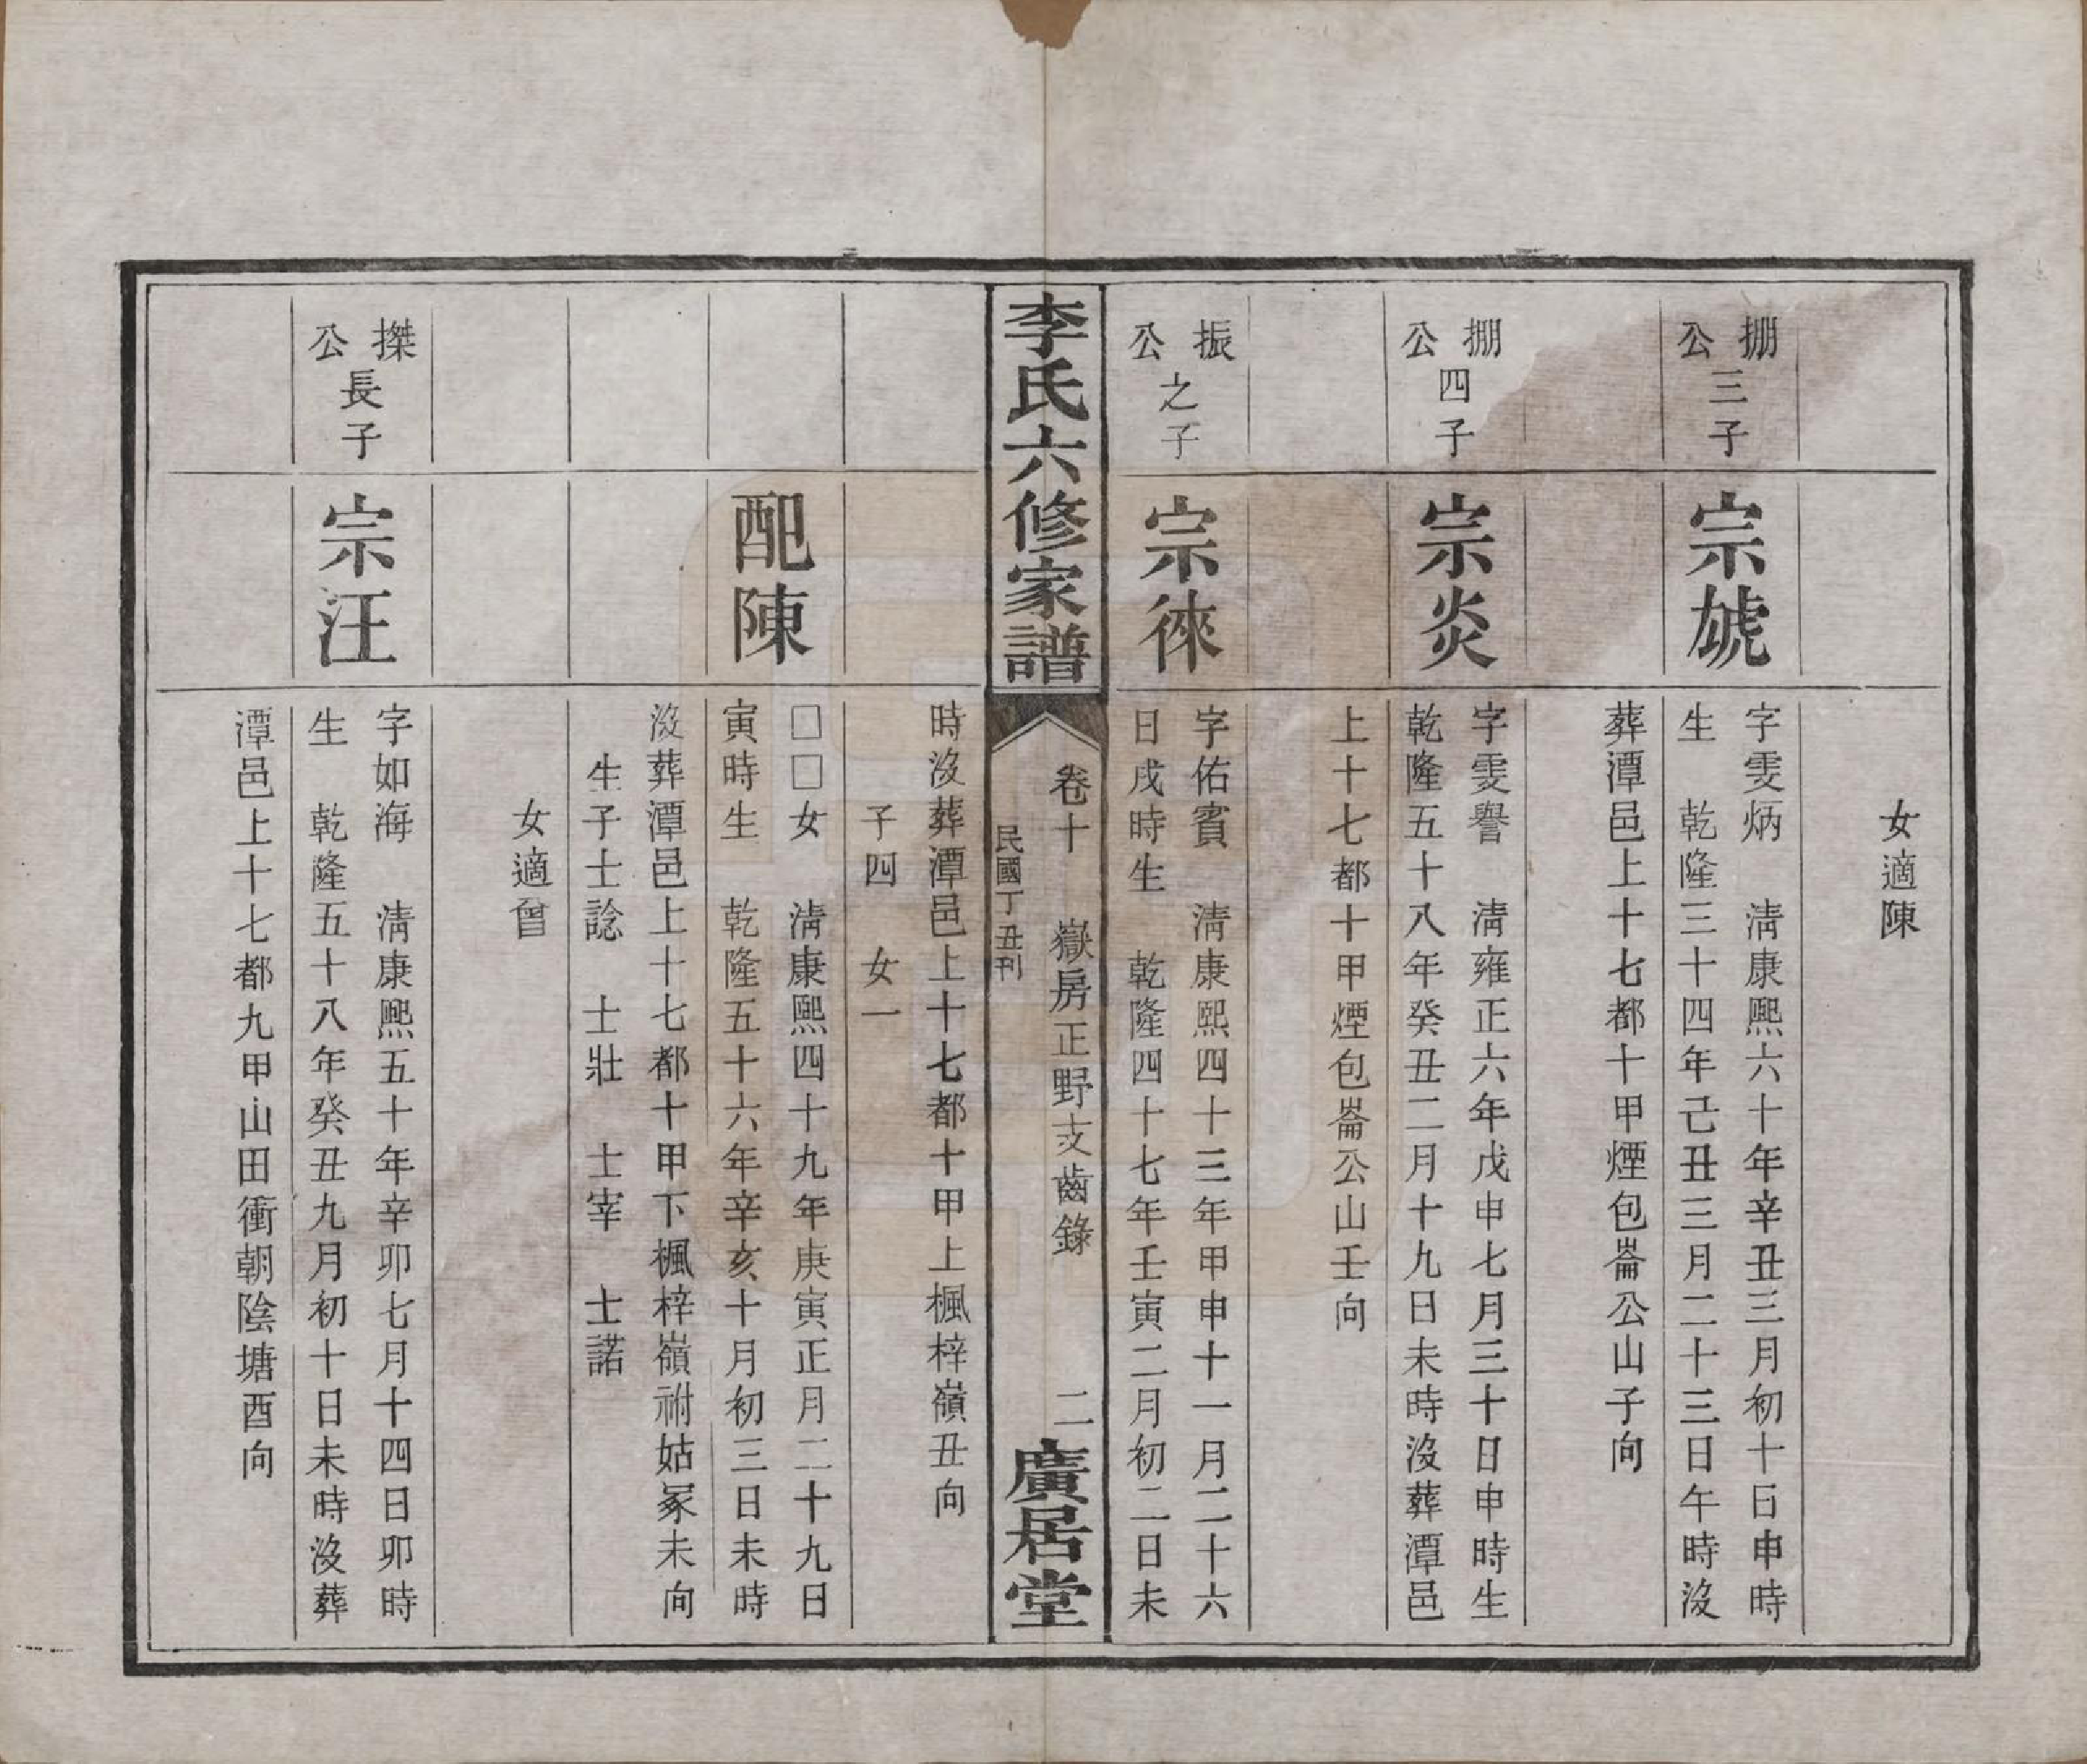 女適陳
掤公三子
宗虓
字雯炳　淸康熙六十年辛丑三月初十日申時
生　乾隆三十四年己丑三月二十三日午時沒
葬潭邑上十七都十甲煙包崙公山子向
掤公四子
宗炎
字雯譽　淸雍正六年戊申七月三十日申時生
乾隆五十八年癸丑二月十九日未時沒葬潭邑
上十七都十甲煙包崙公山壬向
振公之子
宗徠
字佑賓　淸康熙四十三年甲申十一月二十六
日戌時生　乾隆四十七年壬寅二月初二日未
李氏六修家譜
卷十　嶽房正野支齒錄　二
民國丁丑刊
廣居堂
時沒葬潭邑上十七都十甲上楓梓嶺丑向
子四　女一
配陳
□□女　淸康熙四十九年庚寅正月二十九日
寅時生　乾隆五十六年辛亥十月初三日未時
沒葬潭邑上十七都十甲下楓梓嶺祔姑冢未向
生子士諗　士壯　士宰　士諾
女適曾
搩公長子
宗汪
字如海　淸康熙五十年辛卯七月十四日卯時
生　乾隆五十八年癸丑九月初十日未時沒葬
潭邑上十七都九甲山田衝朝陰塘酉向